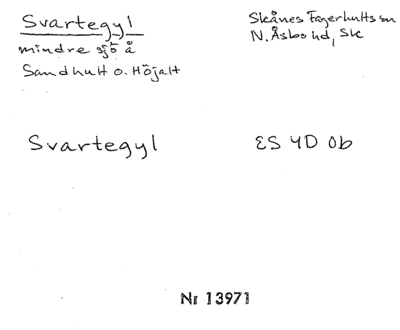 Svartegyl
mindre sjö å
Sandhult o. Höjalt
Skånes Fagerhults sn
N. Åsbo hd, Sk
Svartegyl
ES 4D 0b
Nr 13971